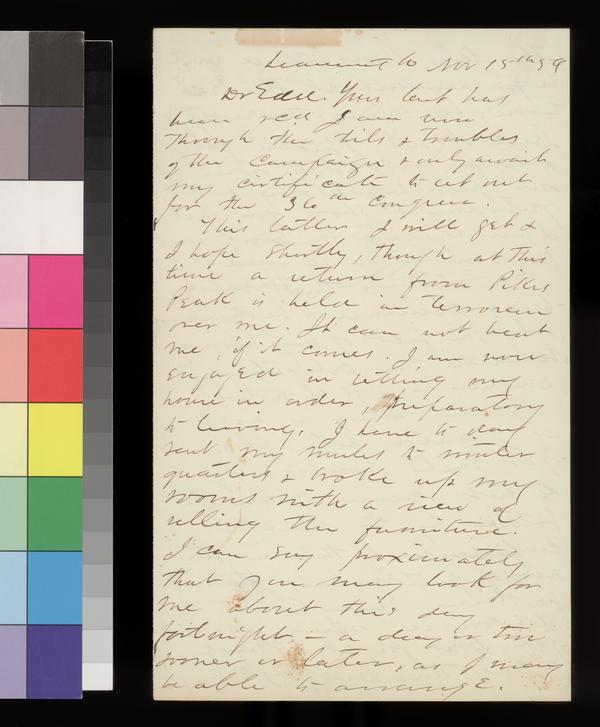 Leavenw'th Nov 15th 1859
Dr Edd. Your last has
been recd I am now
through the toils & troubles
of the campaign & only await
my certificate to set out
for the 36th Congress.
This latter I will get &
I hope shortly, though at this
time a return from Pikes
Peak is held in terrorem
over me. It can not beat
me, if it comes. I am now
engaged in setting my
house in order, preparatory
to leaving. I have to day
sent my mules to winter
quarters & broke up my
rooms with a view of
selling the furniture.
I can say proximately
that you may look for
me about this day
fortnight – a day or two
sooner or later, as I may
be able to arrange.